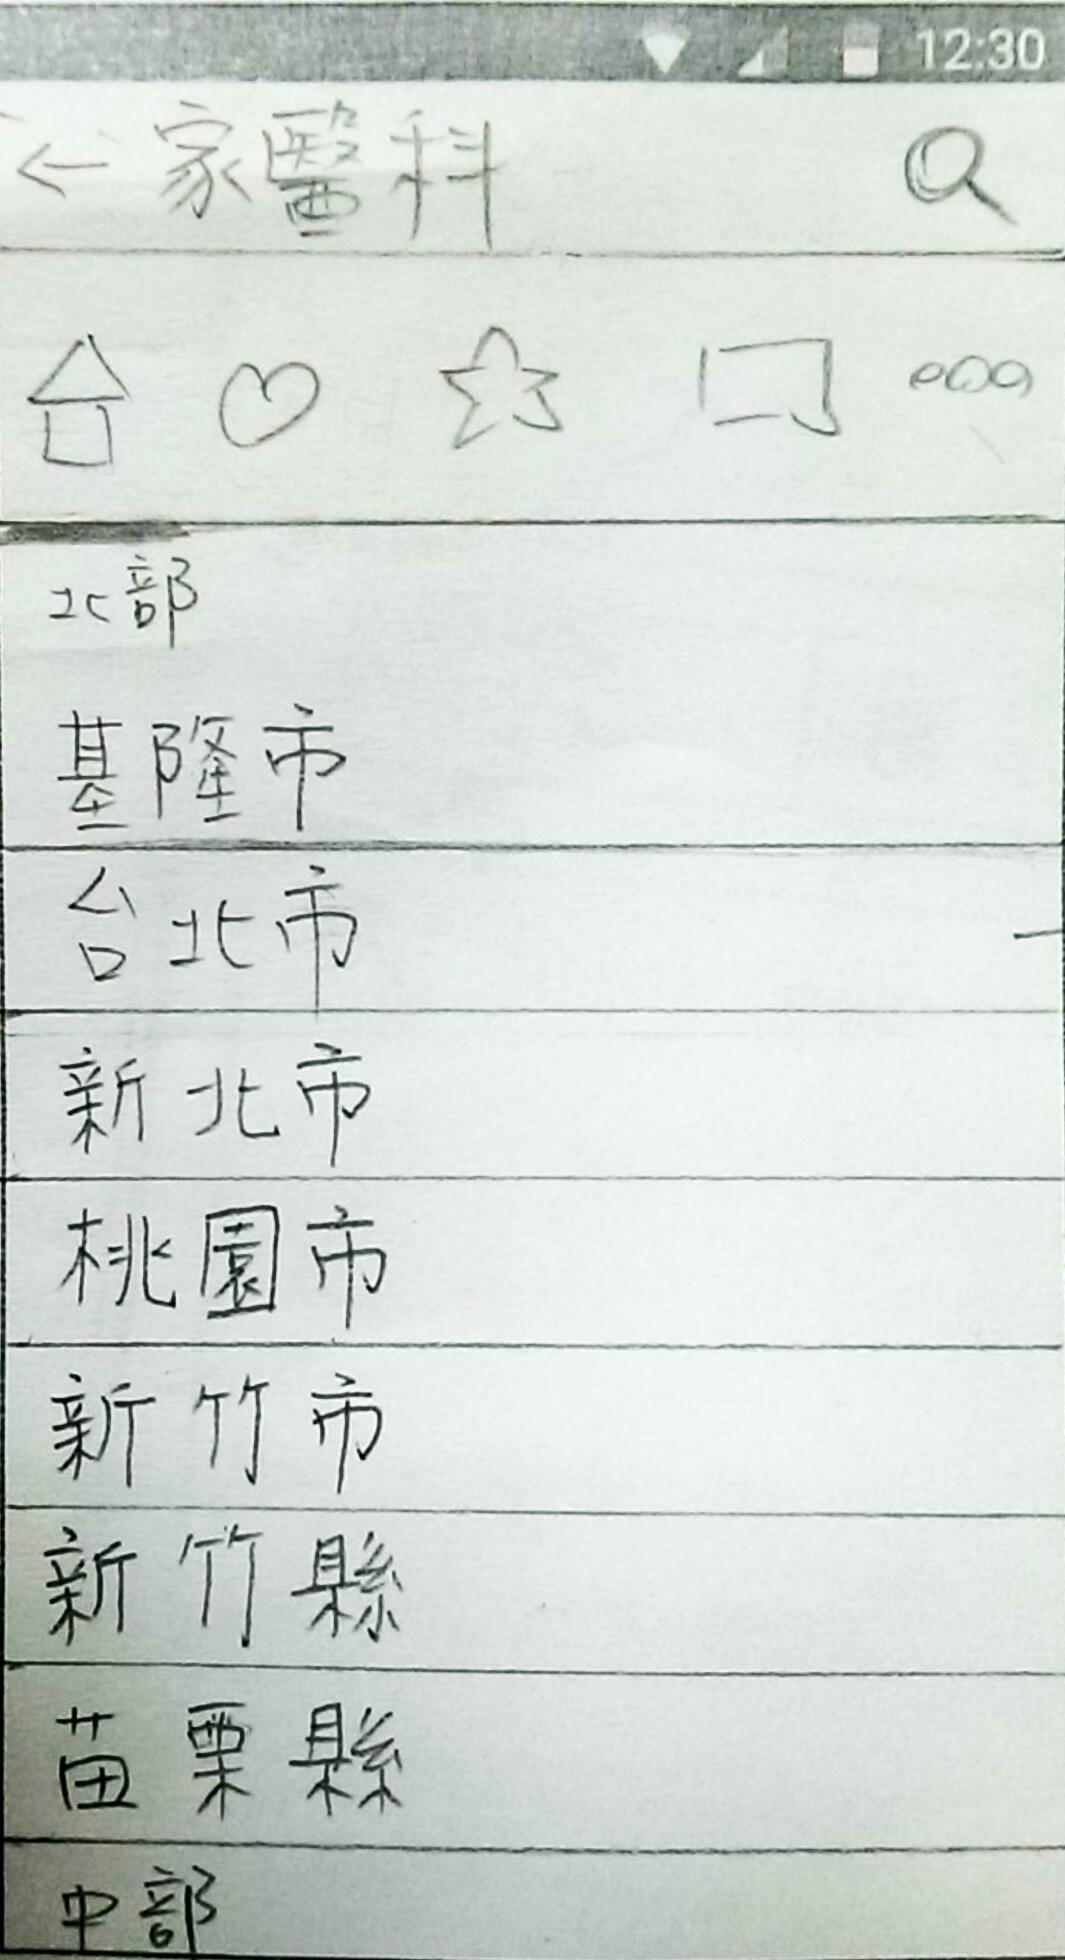 12:30
家醫科
北部
基隆市
台北市
新北市
桃園市
新竹市
新竹縣
苗栗縣
中部